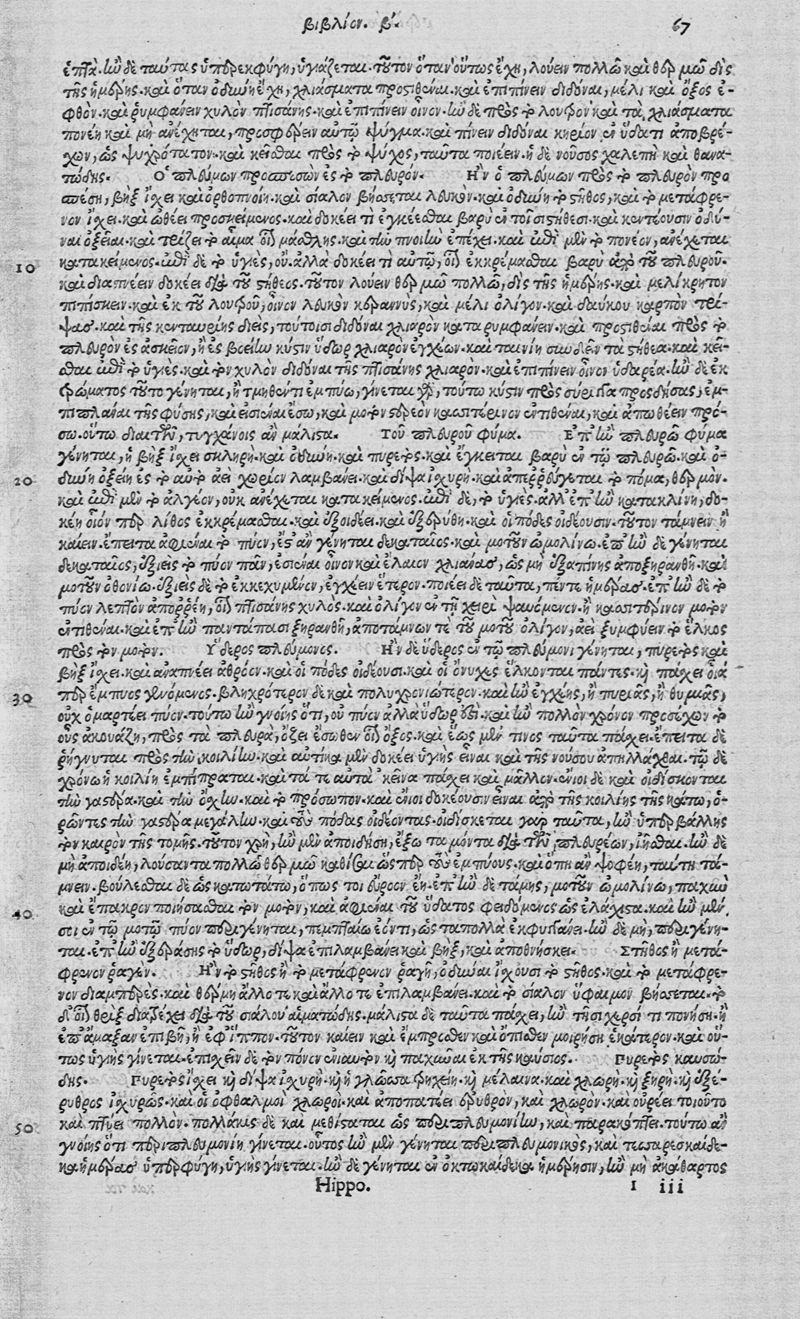 βιβλίον. β΄. 67
ἑπτά. ἢν δὲ ταύτας ὑπερεκφύγῃ, ὑγιάζεται. τοῦτον ὅταν οὕτως ἔχῃ, λούειν πολλῷ καὶ θερμῷ δὶς
τῆς ἡμέρης. καὶ ὅταν ὀδύνη ἔχῃ, χλιάσματα προστιθέναι. καὶ ἐπιπίνειν διδόναι, μέλι καὶ ὄξος ἑ-
φθόν. καὶ ῥυμφάνειν χυλὸν πτισάνης. καὶ ἐπιπίνειν οἶνον. ἢν δὲ πρὸς τὸ λουτρὸν καὶ τὰ χλιάσματα
πονέῃ καὶ μὴ ἀνέχηται, προσφέρειν αὐτῷ ψύγμα. καὶ πίνειν διδόναι κηρίον ἐν ὕδατι ἀποβρέ-
χων, ὡς ψυχρότατον. καὶ κεῖσθαι πρὸς τὸ ψῦχος, ταῦτα ποιέειν. ἡ δὲ νοῦσος χαλεπὴ καὶ θανα-
τώδης. Ὁ πλεύμων προσπεσὼν ἐς τὸ πλευρόν. Ἢν ὁ πλεύμων πρὸς τὸ πλευρὸν προσ
πέσῃ, βὴξ ἴσχει καὶ ὀρθοπνοίη. καὶ σίαλον βήσσεται λευκόν. καὶ ὀδύνη τὸ στῆθος, καὶ τὸ μετάφρε-
νον ἴσχει. καὶ ὠθέει προσκείμενος. καὶ δοκέει τι ἐγκέεσθαι βαρὺ ἐν τοῖσι στήθεσι. καὶ κεντέουσιν ὀδύ-
ναι ὀξεῖαι. καὶ τρίζει τὸ αἷμα οἷον μάσθλης. καὶ τὴν πνοιὴν ἐπέχει. καὶ ἐπὶ μὲν τὸ πονέον, ἀνέχεται
10 κατακείμενος. ἐπὶ δὲ τὸ ὑγιὲς, οὔ. ἀλλὰ δοκέει τι αὐτῷ, οἷον ἐκκρέμασθαι βαρὺ ἀπὸ τοῦ πλευροῦ.
καὶ διαπνέειν δοκέει διὰ τοῦ στήθεος. τοῦτον λούειν θερμῷ πολλῷ, δὶς τῆς ἡμέρης. καὶ μελίκρητον
πιπίσκειν. καὶ ἐκ τοῦ λουτροῦ, οἶνον λευκὸν κεραννὺς, καὶ μέλι ὀλίγον. καὶ δαύκου καρπὸν τρί-
ψας. καὶ τῆς κενταυρίης διεὶς, τούτοισι διδόναι χλιαρὸν καταρυμφάνειν. καὶ προστιθέναι πρὸς τὸ
πλευρὸν ἐς ἀσκίον, ἢ ἐς βοείην κύστιν ὕδωρ χλιαρὸν ἐγχέων. καὶ ταινίῃ συνδεῖν τὰ στήθεα. καὶ κεῖ-
σθαι ἐπὶ τὸ ὑγιές. καὶ τὸν χυλὸν διδόναι τῆς πτισάνης χλιαρόν. καὶ ἐπιπίνειν οἶνον ὑδαρέα. ἢν δὲ ἐκ
τρώματος τοῦτο γένηται, ἢ τμηθέντι ἐμπύῳ, γίνεται γὰρ, τούτῳ κύστιν πρὸς σύριγγα προσδήσας, ἐμ-
πιπλάναι τῆς φύσης, καὶ ἐσιέναι ἔσω, καὶ μοτὸν στερεὸν κασσιτέρινον ἐντιθέναι, καὶ ἀπωθέειν πρό-
σω. οὕτω διαιτῶν, τυγχάνοις ἂν μάλιστα. Τοῦ πλευροῦ φῦμα. Ἐπὴν πλευρῷ φῦμα
γένηται, ἢ βὴξ ἴσχει σκληρή. καὶ ὀδύνη. καὶ πυρετός. καὶ ἔγκειται βαρὺ ἐν τῷ πλευρῷ. καὶ ὀ-
20 δύνη ὀξείη ἐς τὸ αὐτὸ ἀεὶ χωρίον λαμβάνει. καὶ δίψα ἰσχυρή. καὶ ἀπερεύγεται τὸ πόμα, θερμόν.
καὶ ἐπὶ μὲν τὸ ἀλγέον, οὐκ ἀνέχεται κατακείμενος. ἐπὶ δὲ, τὸ ὑγιές. ἀλλ' ἐπὴν κατακλίνῃ, δο-
κέῃ οἷόν περ λίθος ἐκκρέμασθαι. καὶ ἐξοιδέει. καὶ ἐξερύθει. καὶ οἱ πόδες οἰδέουσιν. τοῦτον τάμνειν ἢ
καίειν. ἔπειτα ἀφιέναι τὸ πύον, ἔς τ' ἂν γένηται δεκαταῖος. καὶ μοτοῦν ὠμολίνῳ. ἐπὴν δὲ γένηται
δεκαταῖος, ἐξιεὶς τὸ πύον πᾶν, ἐσιέναι οἶνον καὶ ἔλαιον χλιήνας, ὡς μὴ ἐξαπίνης ἀποξηρανθῇ. καὶ
μοτοῦν ὀθονίῳ. ἐξιεὶς δὲ τὸ ἐκκεχυμένον, ἐγχέειν ἕτερον. ποιέει δὲ ταῦτα, πέντε ἡμέρας. ἐπὴν δὲ τὸ
πύον λεπτὸν ἀπορρέῃ, οἷον πτισάνης χυλός. καὶ ὀλίγον ἐν τῇ χειρὶ ψαυόμενον. ἢ κασσιτέρινον μοτὸν
ἐντιθέναι. καὶ ἐπὴν παντάπασι ξηρανθῇ, ἀποτάμνων τε τοῦ μοτοῦ ὀλίγον, ἀεὶ ξυμφύειν τὸ ἕλκος
πρὸς τὸν μοτόν. Ὕδερος πλεύμονος. Ἢν δὲ ὕδερος ἐν τῷ πλεύμονι γένηται, πυρετὸς καὶ
βὴξ ἴσχει. καὶ ἀναπνέει ἀθρόον. καὶ οἱ πόδες οἰδέουσι. καὶ οἱ ὄνυχες ἕλκονται πάντες. καὶ πάσχει οἷά
30 περ ἔμπυος γενόμενος. βληχρότερον δὲ καὶ πολυχρονιώτερον. καὶ ἢν ἐγχέῃς, ἢ πυριᾷς, ἢ θυμιᾷς,
οὐχ ὁμαρτέει πύον. τούτῳ ἢν γνοίης ὅτι, οὐ πύον ἀλλὰ ὕδωρ ἐστί. καὶ ἢν πολλὸν χρόνον προσέχων τὸ
οὖς ἀκουάζῃ, πρὸς τὰ πλευρὰ, ὄζει ἔσωθεν οἷον ὄξος. καὶ ἕως μέν τινος ταῦτα πάσχει. ἔπειτα δὲ
ῥήγνυται πρὸς τὴν κοιλίην. καὶ αὐτίκα μὲν δοκέει ὑγιὴς εἶναι καὶ τῆς νούσου ἀπηλλάχθαι. τῷ δὲ
χρόνῳ ἡ κοιλίη ἐμπίπραται. καὶ τά τε αὐτὰ κεῖνα πάσχει καὶ μᾶλλον. ἔνιοι δὲ καὶ οἰδίσκονται
τὴν γαστέρα. καὶ τὴν ὄσχην. καὶ τὸ πρόσωπον. καὶ ἔνιοι δοκέουσιν εἶναι ἀπὸ τῆς κοιλίης τῆς κάτω, ὁ-
ρῶντες τὴν γαστέρα μεγάλην. καὶ τοὺς πόδας οἰδέοντας. οἰδίσκεται γὰρ ταῦτα, ἢν ὑπερβάλλῃς
τὸν καιρὸν τῆς τομῆς. τοῦτον χρὴ, ἢν μὲν ἀποιδήσῃ, ἔξω ταμόντα διὰ τῶν πλευρέων, ἰῆσθαι. ἢν δὲ
μὴ ἀποιδέῃ, λούσαντα πολλῷ θερμῷ καθίσαι ὥσπερ τοὺς ἐμπύους. καὶ ὅπῃ ἂν ψοφέῃ, ταύτῃ τά-
μνειν. βούλεσθαι δὲ ὡς κατωτάτω, ὅπως τοι εὔροον ἔῃ. ἐπὴν δὲ τάμῃς, μοτοῦν ὠμολίνῳ, παχὺν
40 καὶ ἔπακρον ποιήσασθαι τὸν μοτόν, καὶ ἀφιέναι τοῦ ὕδατος φειδόμενος ὡς ἐλάχιστα. καὶ ἢν μέν
σοι ἐν τῷ μοτῷ πύον περιγένηται, πεμπταίῳ ἐόντι, ὡς τὰ πολλὰ ἐκφυγγάνει. ἢν δὲ μὴ, περιγένη-
ται. ἐπὴν ἐξεράσῃς τὸ ὕδωρ, δίψα ἐπιλαμβάνει καὶ βὴξ, καὶ ἀποθνήσκει. Στῆθος ἢ μετά-
φρενον ῥαγέν. Ἢν τὸ στῆθος ἢ τὸ μετάφρενον ῥαγῇ, ὀδύναι ἴσχουσι τὸ στῆθος. καὶ τὸ μετάφρε-
νον διαμπερές. καὶ θέρμη ἄλλοτε καὶ ἄλλοτε ἐπιλαμβάνει. καὶ τὸ σίαλον ὕφαιμον βήσσεται. τὸ
δ' οἷον θρὶξ διατρέχει διὰ τοῦ σιάλου αἱματώδης. μάλιστα δὲ ταῦτα πάσχει, ἢν τῇσι χερσί τι πονήσῃ. ἢ
ἐπ' ἄμαξαν ἐπιβῇ, ἢ ἐφ' ἵππον. τοῦτον καίειν καὶ ἔμπροσθεν καὶ ὄπισθεν μοίρῃσιν ἑκάτερον. καὶ οὕ-
τως ὑγιὴς γίνεται. ἐπισχεῖν δὲ τὸν πόνον ἐνιαυτὸν καὶ παχῦναι ἐκ τῆς καύσιος. Πυρετὸς καυσώ-
δης. Πυρετὸς ἴσχει καὶ δίψα ἰσχυρή. καὶ ἡ γλῶσσα τρηχείη καὶ μέλαινα. καὶ χλωρὴ. καὶ ξηρή. καὶ ἐξέ-
ρυθρος ἰσχυρῶς. καὶ οἱ ὀφθαλμοὶ χλωροί. καὶ ἀποπατέει ἐρυθρὸν, καὶ χλωρόν. καὶ οὐρέει τοιοῦτο
50 καὶ πτύει πολλόν. πολλάκις δὲ καὶ μεθίσταται ὡς περιπλευμονίην, καὶ παρακόπτει. τούτῳ ἂν
γνοίης ὅτι περιπλευμονίη γίνεται. οὗτος ἢν μὲν γένηται περιπλευμονικὸς, καὶ τεσσαρεσκαίδε-
κα ἡμέρας ὑπερφύγῃ, ὑγιὴς γίνεται. ἢν δὲ γένηται ἐν ὀκτωκαίδεκα ἡμέρῃσιν, ἢν μὴ ἀκάθαρτος
Hippo. I iii